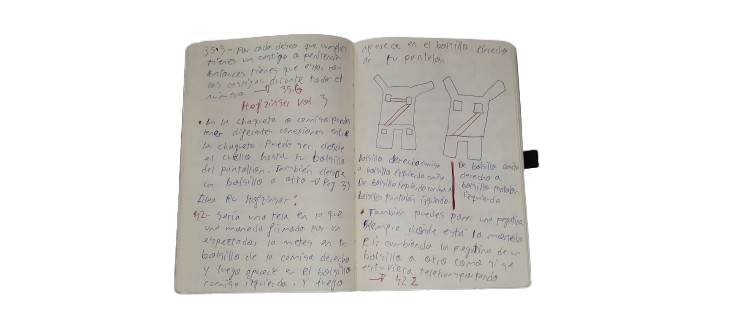 35.3 - Por cada deseo que cumples
tienes un castigo o penitencia
Entonces tienes que estar con
los castigos durante todo el
número → 35.6
Hofzinser Vol 3
• En la chaqueta o camisa puedes
tener diferentes conexiones entre
la chaqueta. Puede ser desde
el cuello hasta tu bolsillo
del pantallon. También desde
un bolsillo a otro → Pag 39
Idea Pu Hofzinser:
42- Sería una tela en la que
una moneda firmada por un
espectador la metes en tu
bolsillo de la camisa derecho
y luego aparece en el bolsillo
camisa izquierdo. Y luego
aparece en el bolsillo derecho
de tu pantalon
Bolsillo derecho camisa
a bolsillo izquierdo camisa
De bolsillo izquierdo camisa a
Bolsillo pantalon izquierdo
De bolsillo camisa
derecho a
bolsillo pantalon
izquierdo
• También puedes poner una pegatina
siempre donde está la moneda
e ir cambiando la pegatina de un
bolsillo a otro como si se
estuviera teletransportando.
→ 42.2